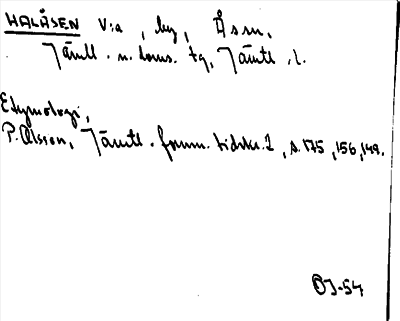 HALÅSEN V:a, by, Ås sn,
Jämtl. n. doms. tg, Jämtl. l.
Etymologi,
P. Olsson, Jämtl. fornm. tidskr. 2, s. 175, 156, 149.
OJ-54